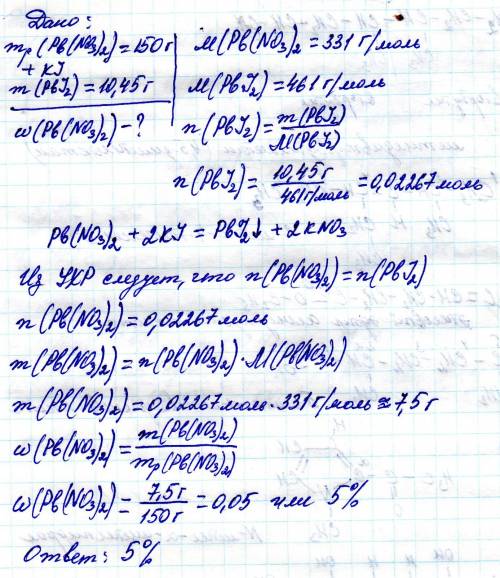 Дано:
mр(Pb(NO₃)₂) = 150 г
+ KJ
m(PbJ₂) = 10,45 г
ω(Pb(NO₃)₂) - ?
M(Pb(NO₃)₂ = 331 г/моль
M(PbJ₂) = 461 г/моль
n(PbJ₂) = m(PbJ₂) / M(PbJ₂)
n(PbJ₂) = 10,45 г / 461 г/моль = 0,02267 моль
Pb(NO₃)₂ + 2KJ = PbJ₂↓ + 2KNO₃
Из УХР следует, что n(Pb(NO₃)₂) = n(PbJ₂)
n(Pb(NO₃)₂) = 0,02267 моль
m(Pb(NO₃)₂) = n(Pb(NO₃)₂) · M(Pb(NO₃)₂)
m(Pb(NO₃)₂) = 0,02267 моль · 331 г/моль ≈ 7,5 г
ω(Pb(NO₃)₂) = m(Pb(NO₃)₂) / mр(Pb(NO₃)₂)
ω(Pb(NO₃)₂) = 7,5 г / 150 г = 0,05 или 5%
Ответ: 5%